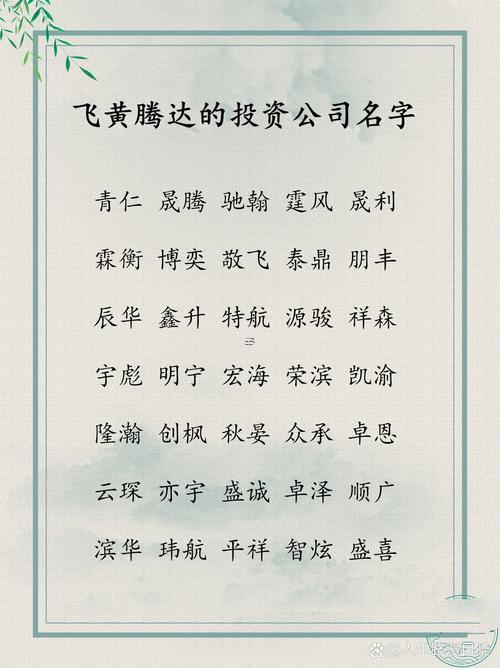 飞黄腾达的投资公司名字
青仁 晟腾 驰翰 霆风 晟利
霖衡 博奕 敬飞 泰鼎 朋丰
辰华 鑫升 特航 源骏 祥森
宇彪 明宁 宏海 荣滨 凯渝
隆瀚 创枫 秋晏 众承 卓恩
云琛 亦宇 盛诚 卓泽 顺广
滨华 玮航 平祥 智炫 盛喜